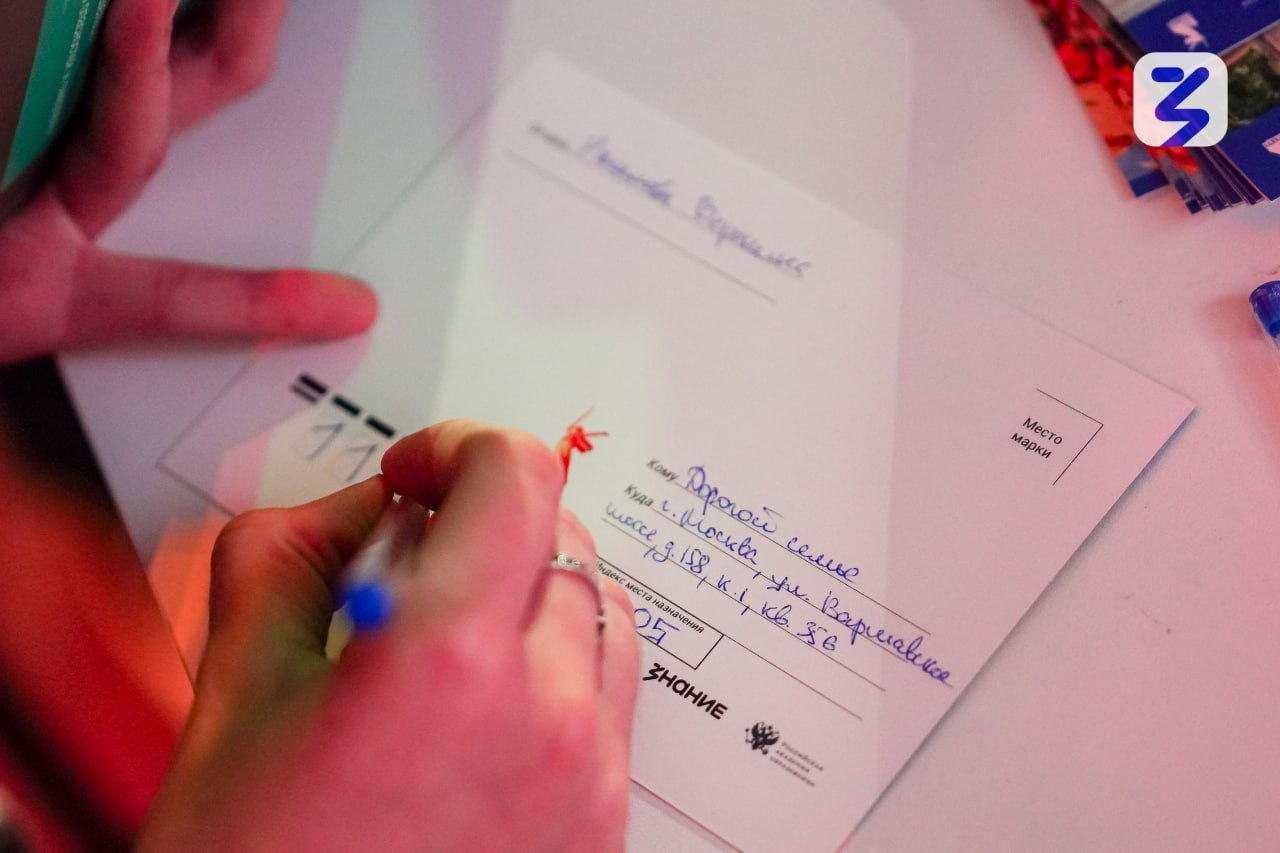 Место
марки
Кому Дорогой семье
Куда г. Москва, ул. Варшавское
шоссе, д. 158, к. 1, кв. 356
Индекс места назначения
05
11
ЗНАНИЕ
Российская
академия
образования